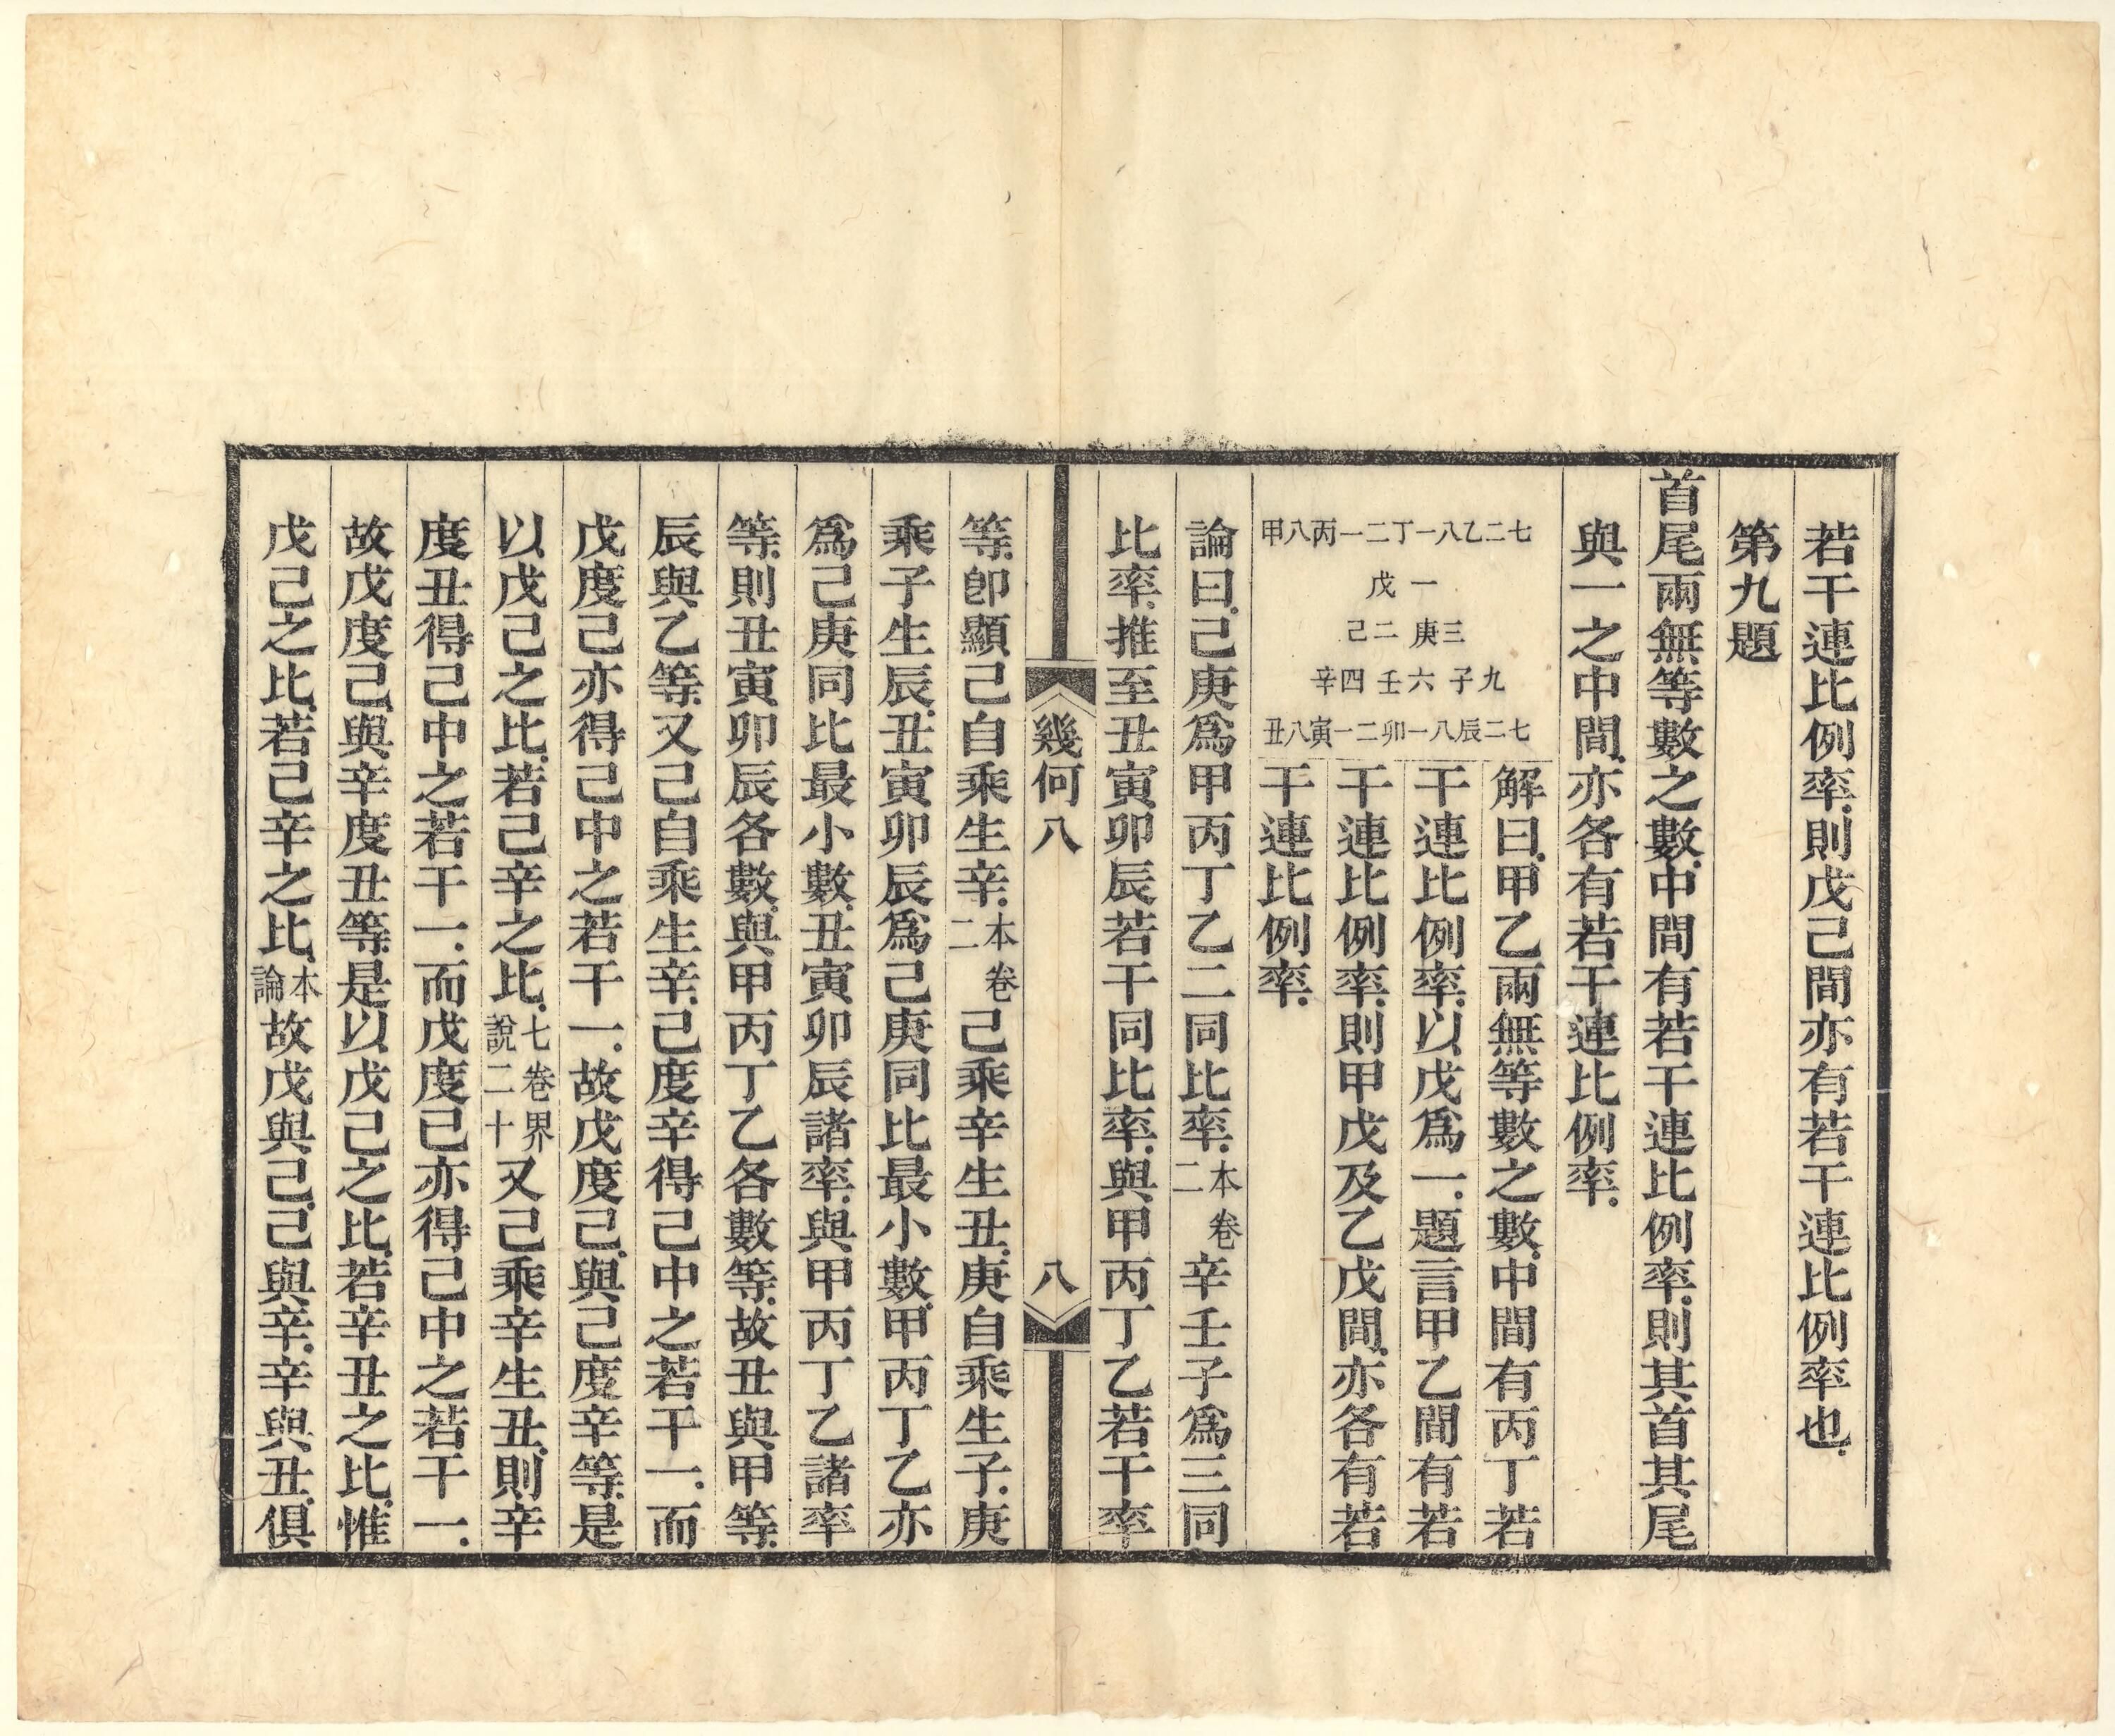 若干連比例率.則戊己間亦有若干連比例率也.
第九題
首尾兩無等數之數.中間有若干連比例率.則其首其尾
與一之中間.亦各有若干連比例率.
甲八丙一二丁一八乙二七
戊 一
己二 庚三
辛四 壬六 子九
丑八寅一二卯一八辰二七
解曰.甲乙兩無等數之數.中間有丙丁若
干連比例率.以戊爲一.題言甲乙間有若
干連比例率.則甲戊及乙戊間.亦各有若
干連比例率.
論曰.己庚爲甲丙丁乙二同比率.本卷二辛壬子爲三同
比率.推至丑寅卯辰若干同比率.與甲丙丁乙若干率
幾何八 八
等.卽顯己自乘生辛.本卷二己乘辛生丑.庚自乘生子.庚
乘子生辰.丑寅卯辰爲己庚同比最小數.甲丙丁乙亦
爲己庚同比最小數.丑寅卯辰諸率.與甲丙丁乙諸率
等.則丑寅卯辰各數.與甲丙丁乙各數等.故丑與甲等.
辰與乙等.又己自乘生辛.己度辛得己中之若干一.而
戊度己亦得己中之若干一.故戊度己.與己度辛等.是
以戊己之比.若己辛之比.七卷界說二十又己乘辛生丑.則辛
度丑得己中之若干一.而戊度己亦得己中之若干一.
故戊度己.與辛度丑等.是以戊己之比.若辛丑之比.惟
戊己之比.若己辛之比.本論故戊與己.己與辛.辛與丑.俱